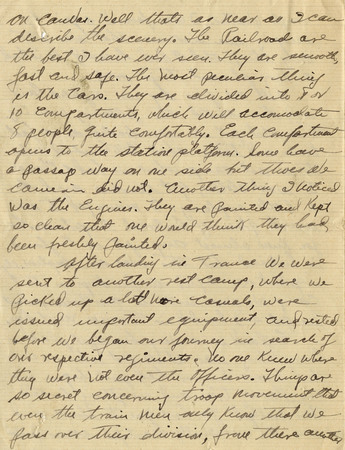 on canvas. Well thats as near as I can
describe the scenery. The Railroad are
the best I have ever seen. They are smooth,
fast and safe. The most peculiar thing
is the Cars. They are divided into 8 or
10 compartments, which will accomodate
8 people quite comfortably. Each compartment
opens to the station platform. Some have
a passage way on one side but those we
came in did not. Another thing I noticed
was the Engines. They are painted and kept
so clean that one would think they had
been freshly painted.
After landing in France we were
sent to another rest camp, where we
picked up a lot more casuals, were
issued important equipment, and rested
before we began our journey in search of
our respective regiments. No one knew where
they were not even the officers. Things are
so secret concerning troop movement that
even the train men only know that we
pass over their division, from there another